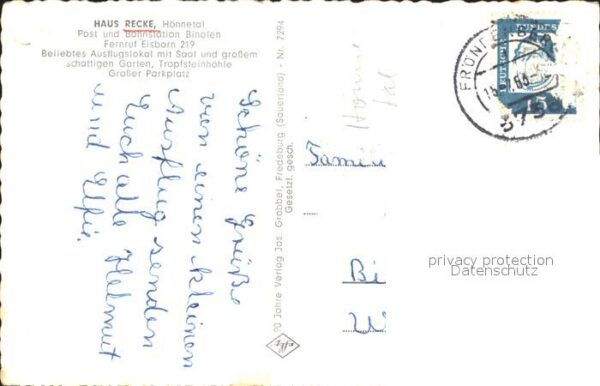 HAUS RECKE, Hönnetal
Post und Bahnstation Binolen
Fernruf Eisborn 219
Beliebtes Ausflugslokal mit Saal und großem
schattigen Garten, Tropfsteinhöhle
Großer Parkplatz
Schöne Grüße
von einen kleinen
Ausflug senden
Euch alle Helmut
und Elfie.
Jahre Verlag Jos. Grobbel, Fredeburg (Sauerland) - Nr. 7294
Gesetzl. gesch.
Hönne
tal
DEUTSCHE BUNDES
15
FRÖND
575
Famili
Bi
W
privacy protection
Datenschutz